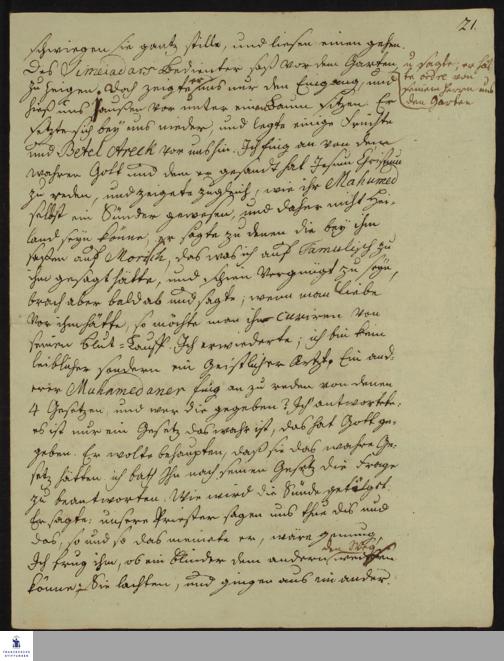 21.
schwiegen sie gantz stille, und liesen einen gehen.
Des Simeiadars Bedienter saß vor dem Garten, u. sagte, er hät-
te ordre von
seinem Herrn uns
den Garten
zu zeigen, Doch zeigte er uns nur den Eingang, und
hieß uns draußen vor unter einem Baum sitzen. Er
setzte sich bey uns nieder, und legte einige Früchte
und Betel Areck vor uns hin. Ich fing an von dem
wahren Gott und dem er gesandt hat Jesum Christum
zu reden, und zeigete zugleich, wie ihr Mahumed
selbst ein Sünder gewesen, und daher nicht Hei-
land seyn könne, er sagte zu denen die bey ihm
saßen auf Morisch, das was ich auf Tamulisch zu
ihm gesagt hatte, und schien vergnügt zu seyn,
brach aber bald ab und sagte, wenn man Liebe
vor ihm hätte, so möchte man ihn curiren von
seinem Blut-Lauff. Ich erwiederte, ich bin kein
leiblicher sondern ein Geistlicher Artzt. Ein and-
erer Muhamedaner fing an zu reden von denen
4 Gesetzen, und wer die gegeben? Ich antwortete,
es ist nur ein Gesetz das wahr ist, das hat Gott ge-
geben. Er wolte behaupten, daß sie das wahre Ge-
setz hätten, ich bath Ihn nach seinem Gesetz die Frage
zu beantworten. Wie wird die Sünde getilget.
Er sagte: unsere Priester sagen uns thue dis und
das, so und so das meinete er, wäre genung
Ich frug ihn, ob ein Blinder dem andern den Weg weisen
könne; Sie lachten, und gingen aus ein ander.
FRANCKESCHE
STIFTUNGEN